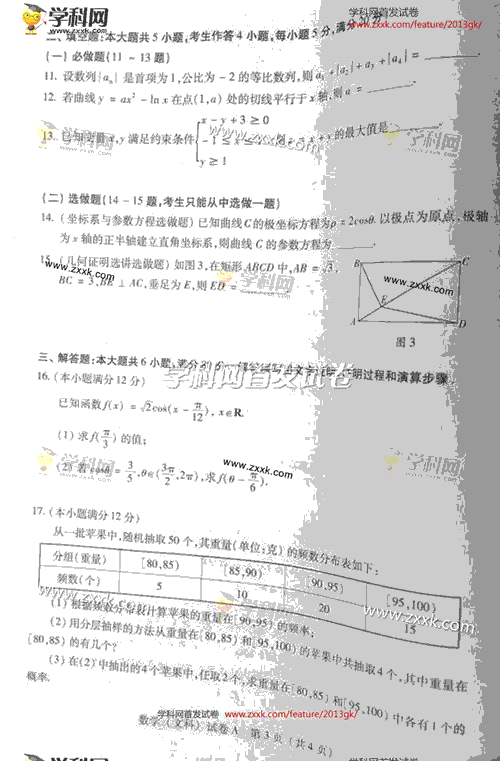 学科网首发试卷
www.zxxk.com/feature/2013gk/
二、填空题:本大题共5小题,考生作答4小题,每小题5分,满分20分
(一)必做题(11~13题)
11. 设数列{aₙ}是首项为1,公比为-2的等比数列,则a₁+|a₂|+a₃+|a₄|=
12. 若曲线y=ax²-ln x在点(1,a)处的切线平行于x轴,则a=
13. 已知变量x,y满足约束条件{x-y+3≥0
-1≤x≤1
y≥1
的最大值是
(二)选做题(14-15题,考生只能从中选做一题)
14.(坐标系与参数方程选做题)已知曲线C的极坐标方程为ρ=2cosθ. 以极点为原点,极轴
为x轴的正半轴建立直角坐标系,则曲线C的参数方程为
15.(几何证明选讲选做题)如图3,在矩形ABCD中,AB=√3,
BC=3,BE⊥AC,垂足为E,则ED=
B C
E
A D
图3
三、解答题:本大题共6小题,满分80分.
明过程和演算步骤.
16.(本小题满分12分)
已知函数f(x)=√2cos(x-π/12), x∈R.
(1)求f(π/3)的值;
(2)若cosθ=3/5,θ∈(3π/2,2π),求f(θ-π/6).
17.(本小题满分12分)
从一批苹果中,随机抽取50个,其重量(单位:克)的频数分布表如下:
分组(重量) [80,85) [85,90) [90,95) [95,100)
频数(个) 5 10 20 15
(1)根据频数分布表计算苹果的重量在[90,95)的频率;
(2)用分层抽样的方法从重量在[80,85)和[95,100)的苹果中共抽取4个,其中重量在
[80,85)的有几个?
(3)在(2)中抽出的4个苹果中,任取2个,求重量在[80,85)和[95,100)中各有1个的
概率.
学科网首发试卷
www.zxxk.com/feature/2013gk/
数学(文科)试卷A 第3页(共4页)